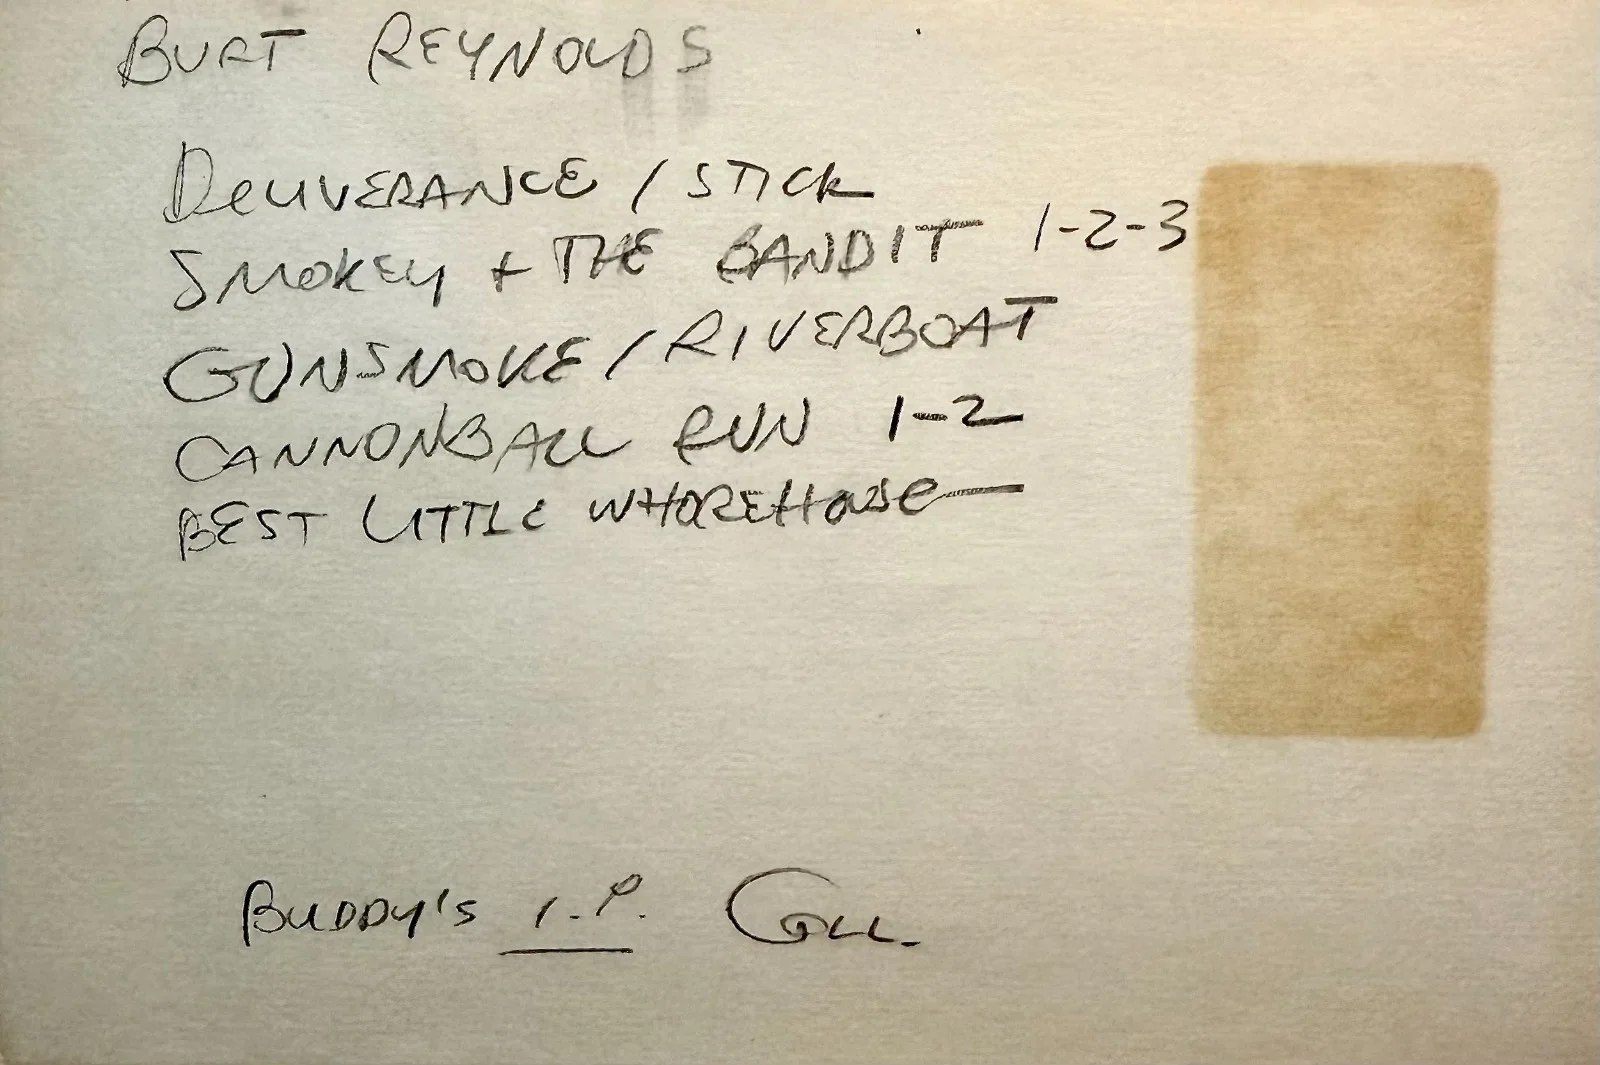 BURT REYNOLDS
DELIVERANCE / STICK
SMOKEY + THE BANDIT 1-2-3
GUNSMOKE / RIVERBOAT
CANNONBALL RUN 1-2
BEST LITTLE WHOREHOUSE—
BUDDY'S I.P. COLL.